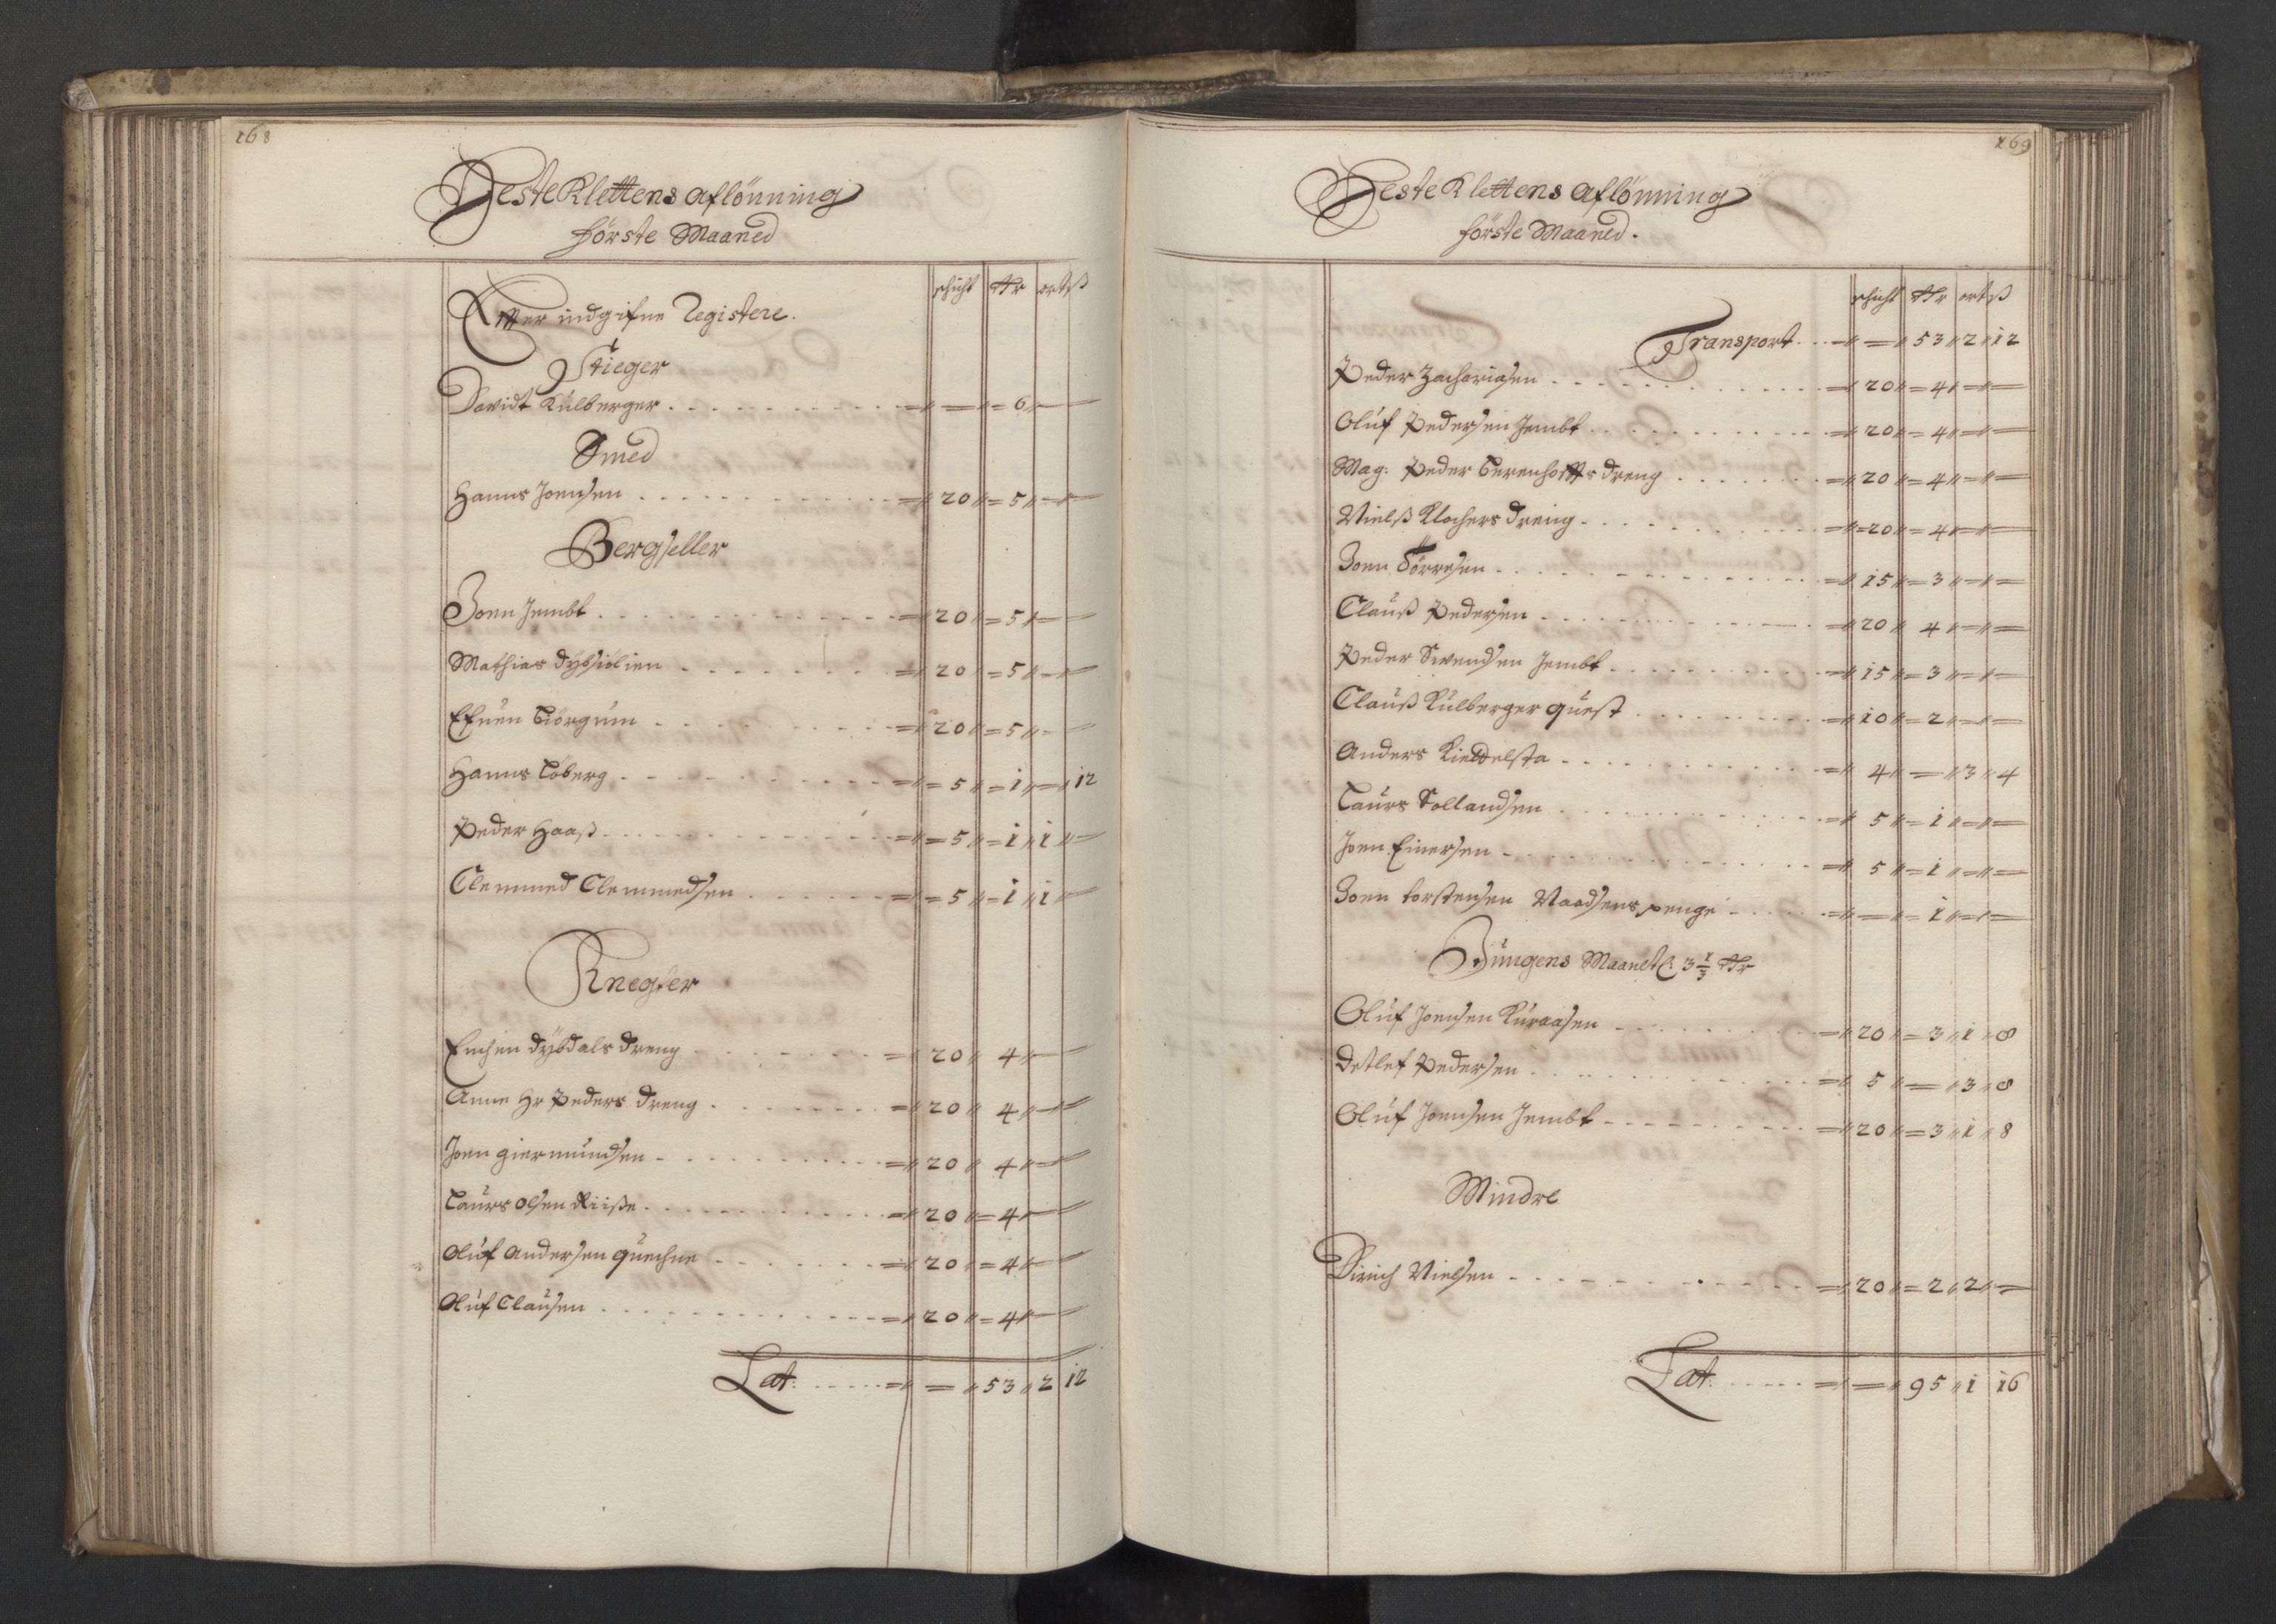 168
HesteKlettens aflönning
förste Maaned
schicht Rr ort ß
Effter indgifne Registere.
Stieger
Davidt Külberger . . . . . = — = 6 —
Smed
Hanns Joensen . . . . . = 20 = 5 — —
Bergseller
Joen Jembt . . . . . = 20 = 5 — —
Mathias dybsiölien . . . . . = 20 = 5 — —
Efuen Tiörgum . . . . . = 20 = 5 — —
Hanns Töberg . . . . . = 5 = 1 — 12
Peder Haaß . . . . . = 5 = 1 1 —
Clemmed Clemmedsen . . . . . = 5 = 1 1 —
Knegter
Enchen dybdals dreng . . . . . = 20 4 —
Anne Hr Peders dreng . . . . . = 20 4 — —
Joen giermundsen . . . . . = 20 4 — —
Laurs olsen Riiße . . . . . = 20 = 4 —
Oluf Andersen quechne . . . . . = 20 = 4 —
Oluf Clausen . . . . . = 20 = 4 —
Lat: . . . . . = — 53 2 12
169
HesteKlettens aflönning
förste Maaned.
schicht Rr ort ß
Transport . . . = — 53 2 12
Peder Zachariasen . . . . . = 20 = 4 — —
Oluf Pedersen Jembt . . . . . = 20 = 4 — —
Mag: Peder dreng . . . . . = 20 = 4 — —
Nielß Klochers dreng . . . . . = 20 = 4 — —
Joen Törresen . . . . . = 15 = 3 — —
Clauß Pedersen . . . . . = 20 4 — —
Peder Swendsen Jembt . . . . . = 15 = 3 — —
Clauß Külberger quest . . . . . = 10 = 2 — —
Anders Kieldelsta . . . . . = 4 — 3 4
Laurs Sollandsen . . . . . = 5 = 1 — —
Joen Einersen . . . . . = 5 = 1 — —
Joen torstensen Vaadsens penge . . . . . = — = 1 — —
Jüngens Maanetl: 3 1/3 Rr
Oluf Joensen Kuraasen . . . . . = 20 = 3 1 8
Detlef Pedersen . . . . . = 5 — 3 8
Oluf Joensen Jembt . . . . . = 20 = 3 1 8
Mindre
Dirich Nielsen . . . . . = 20 = 2 2 —
Lat: . . . . . = — 95 1 16